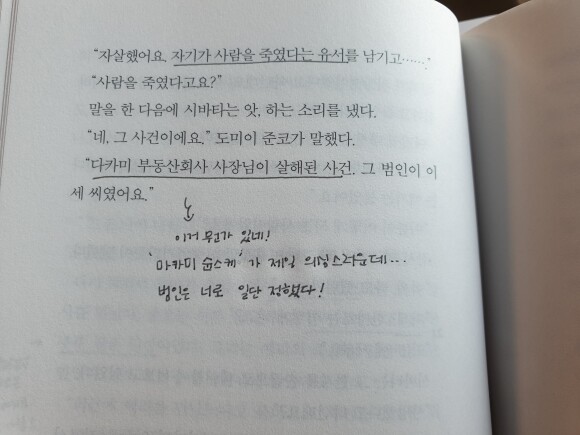 “자살했어요. 자기가 사람을 죽였다는 유서를 남기고…….”
“사람을 죽였다고요?”
말을 한 다음에 시바타는 앗, 하는 소리를 냈다.
“네, 그 사건이에요.” 도미이 준코가 말했다.
“다카미 부동산회사 사장님이 살해된 사건. 그 범인이 이
세 씨였어요.”
이거 뭔가 있네!
'마카미 윤스케'가 제일 의심스러운데...
범인은 너로 일단 정했다!